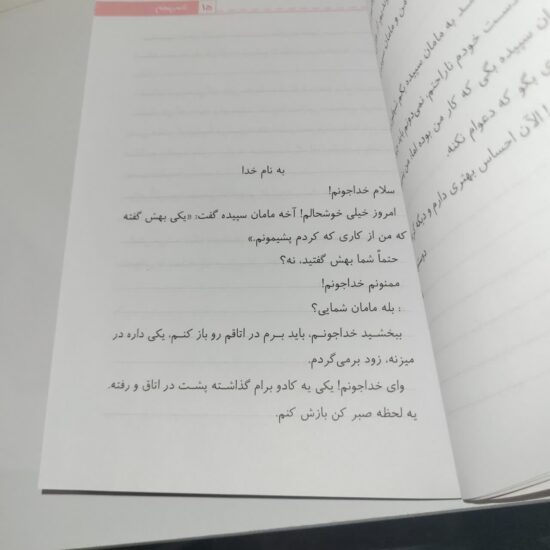 ۱۵
به نام خدا
سلام خداجونم!
امروز خیلی خوشحالم! آخه مامان سپیده گفت: «یکی بهش گفته
که من از کاری که کردم پشیمونم.»
حتماً شما بهش گفتید، نه؟
ممنونم خداجونم!
: بله مامان شمایی؟
ببخشید خداجونم، باید برم در اتاقم رو باز کنم، یکی داره در
میزنه، زود برمی‌گردم.
وای خداجونم! یکی یه کادو برام گذاشته پشت در اتاق و رفته.
یه لحظه صبر کن بازش کنم.
به مامان سپیده بگم
دست خودم ناراحتم، نمی‌دونم
سپیده بگی که کار من بوده اما من
بگو که دعوام نکنه.
الآن احساس بهتری دارم و دیگه